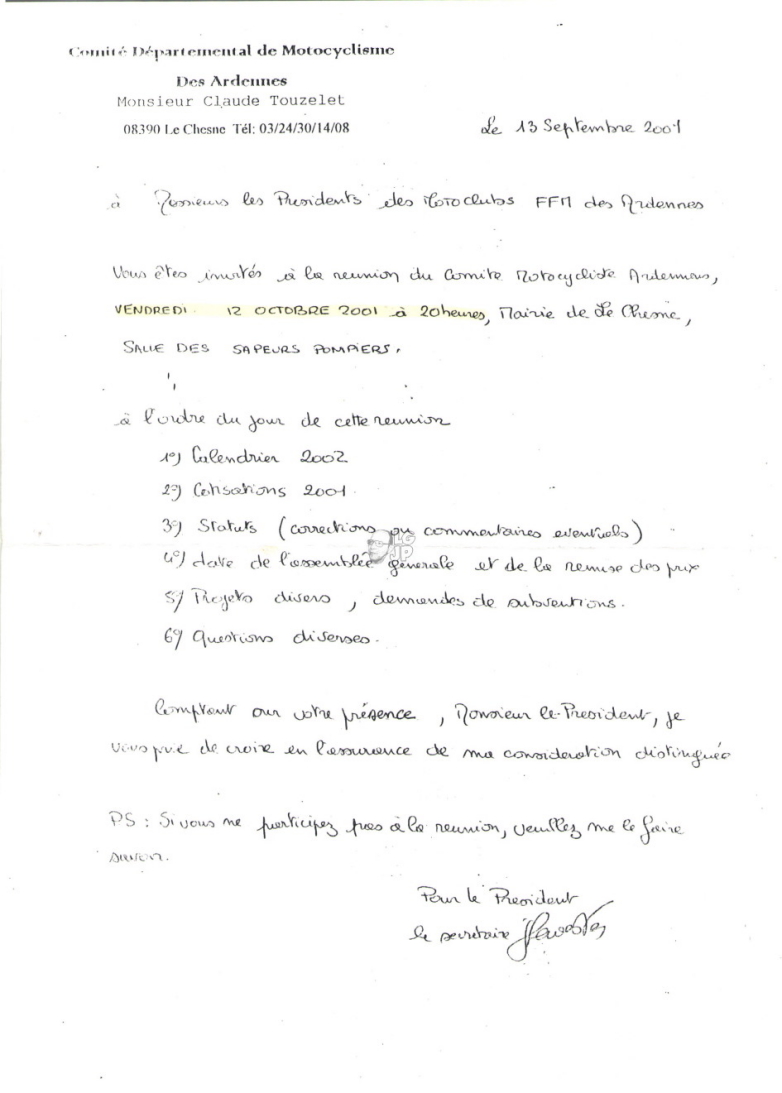 Comité Départemental de Motocyclisme
Des Ardennes
Monsieur Claude Touzelet
08390 Le Chesne Tél: 03/24/30/14/08
Le 13 Septembre 2001
à Messieurs les Presidents des Motoclubs FFM des Ardennes
Vous êtes invités à la reunion du Comite Motocycliste Ardennais,
VENDREDI 12 OCTOBRE 2001 à 20heures, Mairie de Le Chesne,
SALLE DES SAPEURS POMPIERS.
à l'ordre du jour de cette reunion
1º) Calendrier 2002
2º) Cotisations 2001
3º) Statuts (corrections ou commentaires eventuels)
LG JP
4º) date de l'assemblée générale et de la remise des prix
5º) Projets divers, demandes de subventions.
6º) Questions diverses.
Comptant sur votre présence, Monsieur le President, je
vous prie de croire en l'assurance de ma consideration distinguée
PS : Si vous ne participez pas à la reunion, veuillez me le faire
savoir.
Pour le President
le secretaire